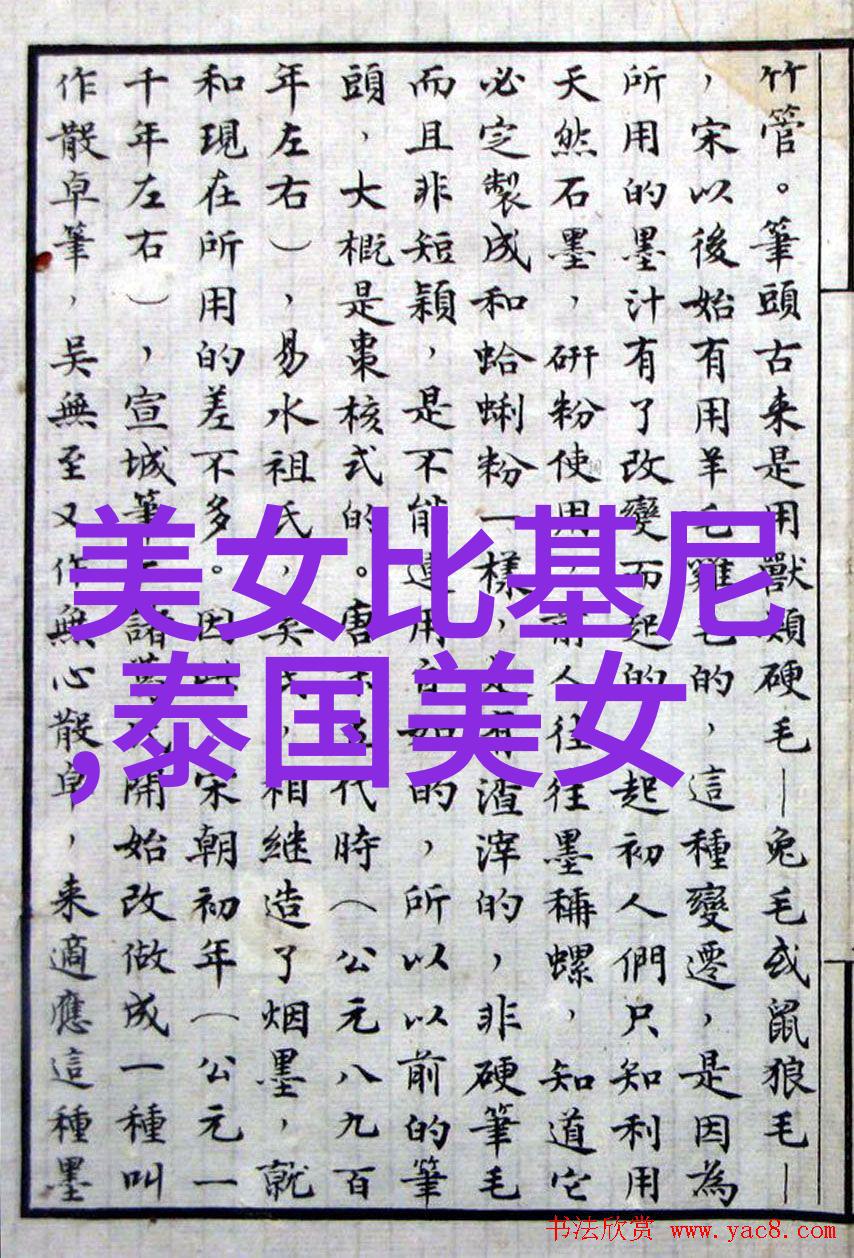 竹管。筆頭古来是用獸類硬毛—兔毛或鼠狼毛—
，宋以後始有用羊毛雞毛的，這種變遷，是因為
所用的墨汁有了改變而起的 起初人們只知利用
天然石墨，研粉使用 前人往往墨稱螺，知道它
必定製成和蛤蜊粉一樣， 有渣滓的，非硬筆毛
而且非短穎，是不能 用 的，所以以前的筆
頭，大概是棗核式的。唐 代時（公元八九百
年左右），易水祖氏， 相継造了烟墨，就
和現在所用的差不多。因 宋朝初年（公元一
千年左右），宣城筆 諸葛 開始改做成一種叫
作散卓筆，吴無至又作無心散卓，来適應這種墨
美女比基尼
,泰国美女
书法欣赏 www.yac8.com